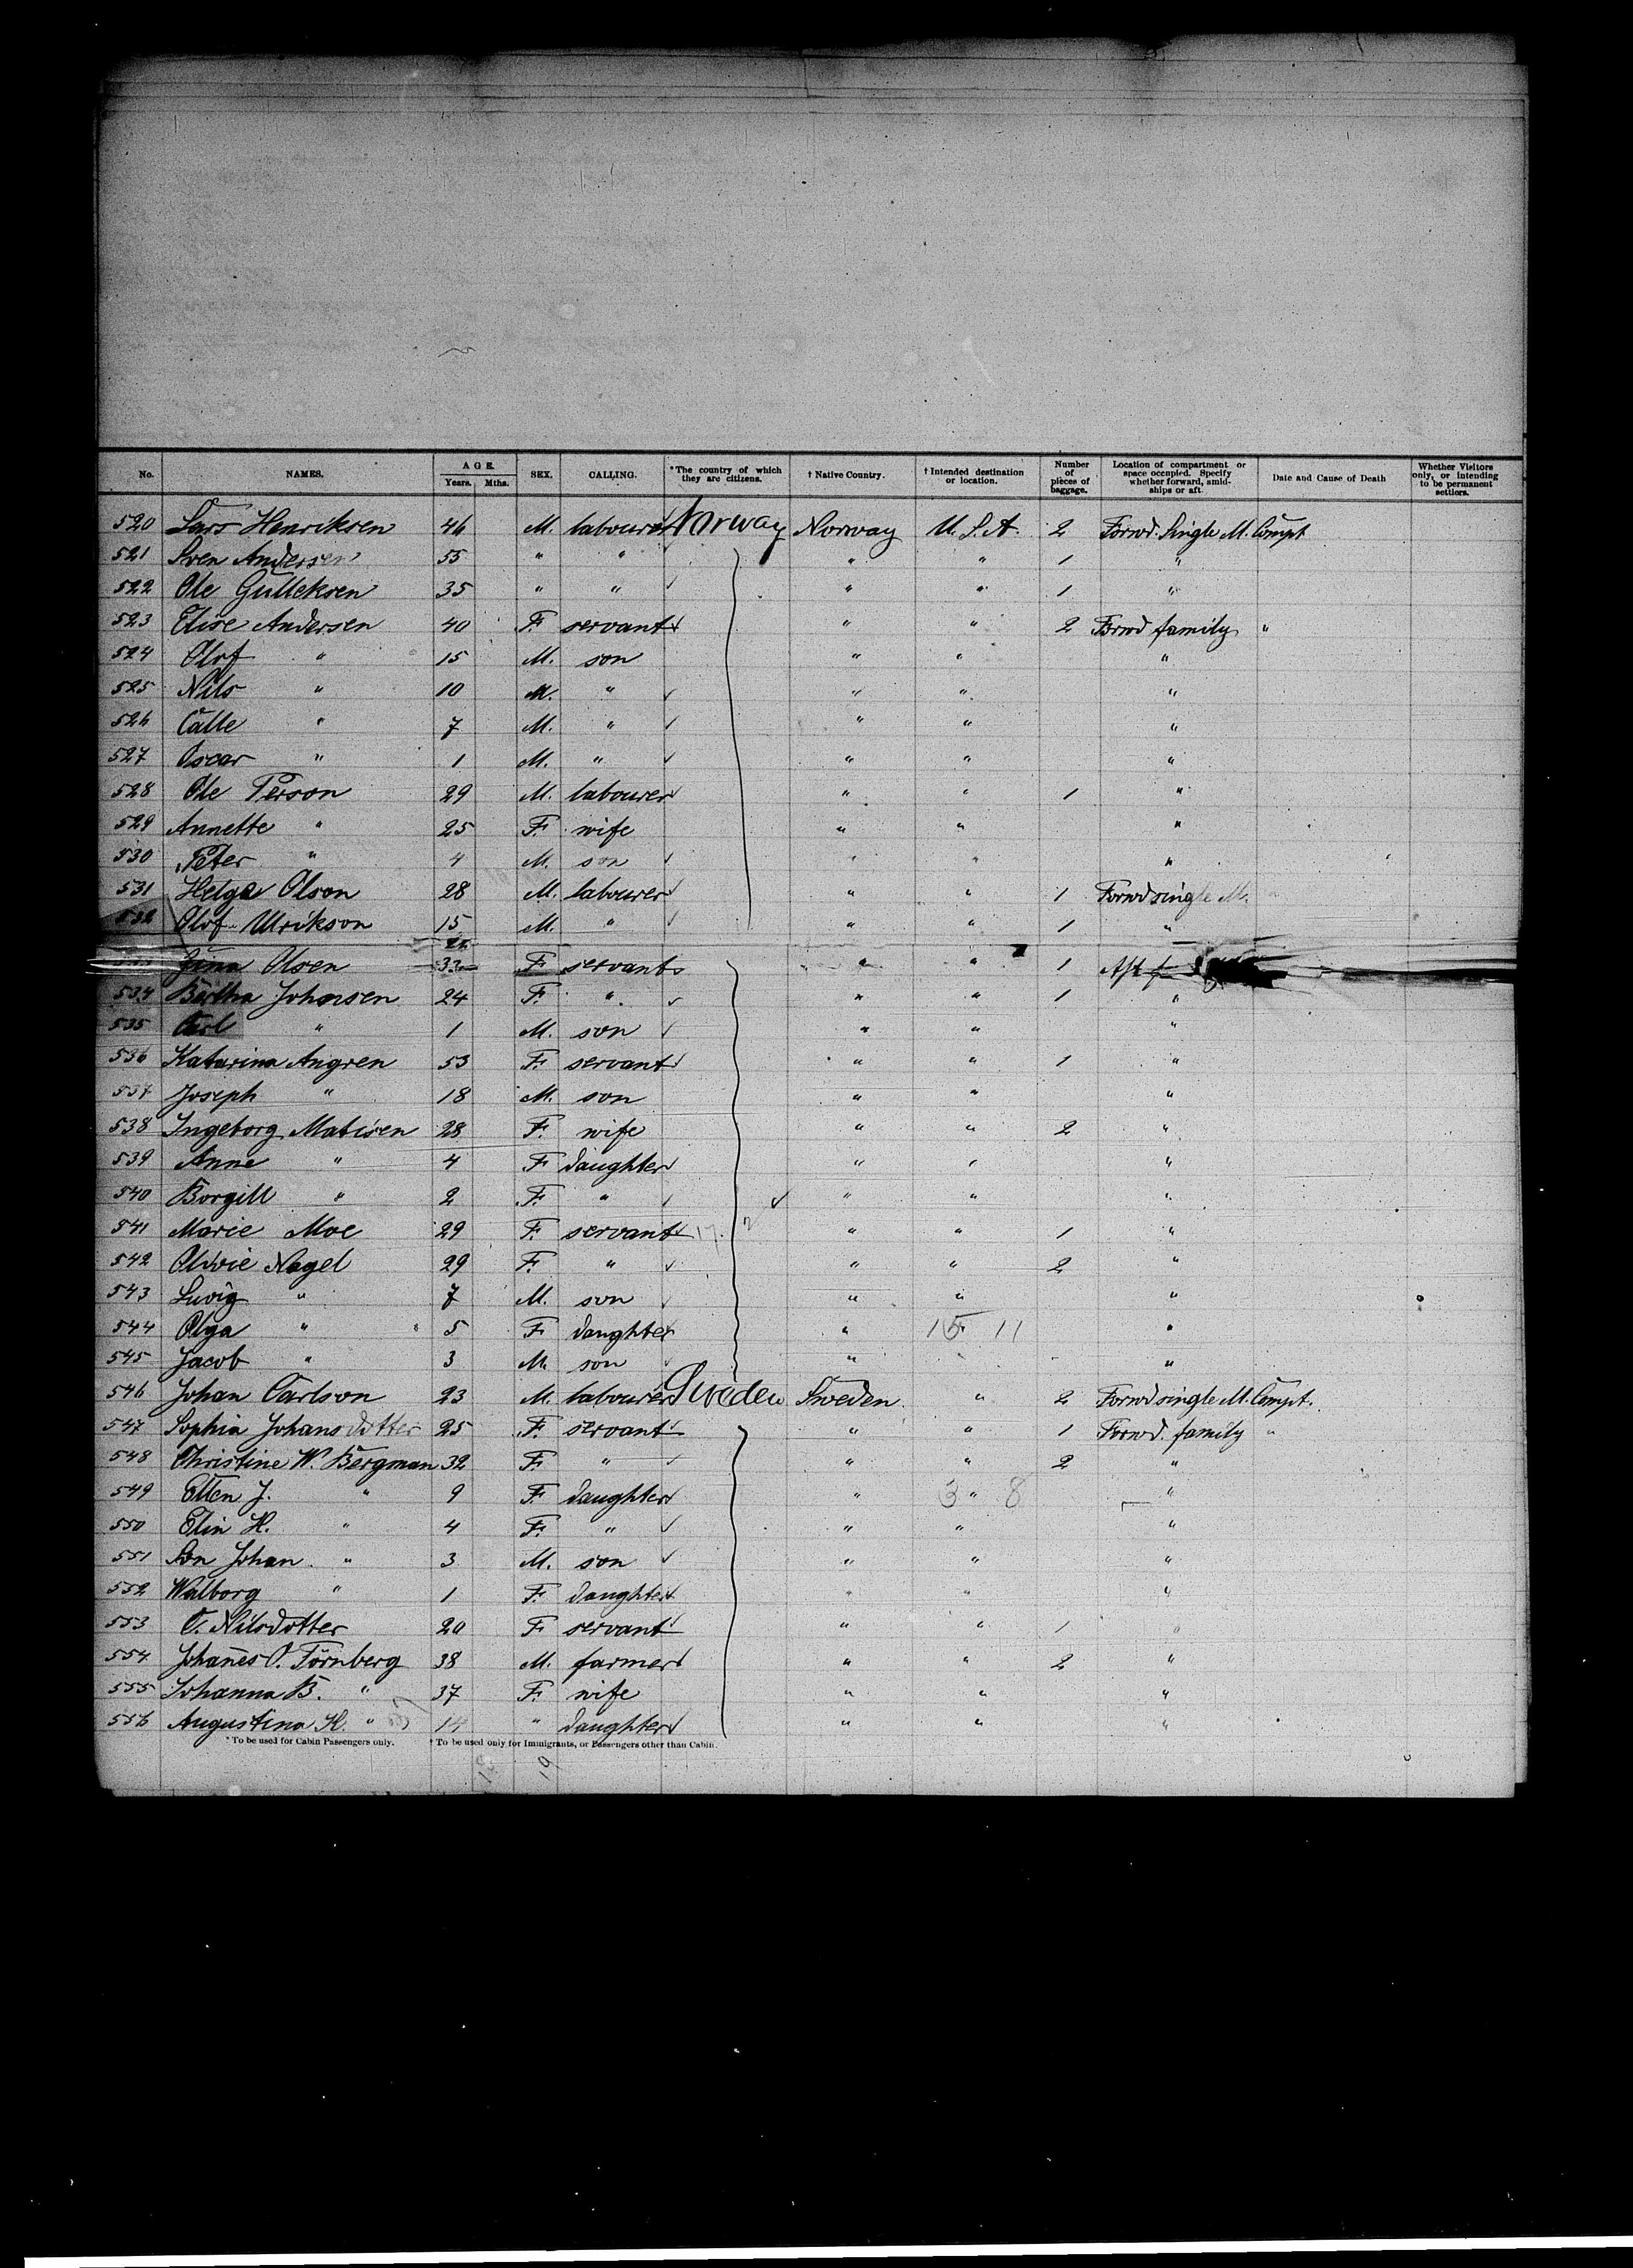 No. NAMES. AGE. Years. Mths. SEX. CALLING. *The country of which they are citizens. † Native Country. † Intended destination or location. Number of pieces of baggage. Location of compartment or space occupied. Specify whether forward, amidships or aft Date and Cause of Death Whether Visitors only, or intending to be permanent settlers.
520 Lars Henriksen 46 M. labourer Norway Norway U.S.A. 2 Forwd. Single M. Compt
521 Sven Andersen 55 " " " " 1 "
522 Ole Gulleksen 35 " " " " 1 "
523 Elise Andersen 40 F. servant " " 2 Forwd family "
524 Olof " 15 M. son " " "
525 Nils " 10 M. " " " "
526 Calle " 7 M. " " " "
527 Oscar " 1 M. " " " "
528 Ole Person 29 M. labourer " " 1 "
529 Annette " 25 F. wife " " "
530 Peter " 4 M. son " " "
531 Helge Olson 28 M. labourer " " 1 Forwd single M. "
532 Olof Ulrikson 15 M. " " " 1 "
Olsen 22 33 F servant " " 1 Aft
534 Bertha Johnsen 24 F. " " " 1 "
535 Carl " 1 M. son " " "
536 Katarina Angren 53 F. servant " " 1 "
537 Joseph " 18 M. son " " "
538 Ingeborg Matisen 28 F. wife " " 2 "
539 Anne " 4 F daughter " " "
540 Borgill " 2 F. " " " "
541 Marie Moe 29 F. servant 17 " " 1 "
542 Olivie Nagel 29 F. " " " 2 "
543 Luvig " 7 M. son " " "
544 Olga " 5 F daughter " 15 11 "
545 Jacob " 3 M. son " "
546 Johan Carlson 23 M. labourer Sweden Sweden " 2 Forwd single M. Compt.
547 Sophia Johansdotter 25 F. servant " " 1 Forwd. family "
548 Christine W. Bergman 32 F. " " " 2 "
549 Ellen J. " 9 F. daughter " 3 " 8 "
550 Elin H. " 4 F. " " " "
551 Johan " 3 M. son " " "
552 Walborg " 1 F. daughter " " "
553 C. Nilsdotter 20 F servant " " 1 "
554 Johanes O. Törnberg 38 M. farmer " " 2 "
555 Johanna B. " 37 F. wife " " "
556 Augustina H. " 14 " daughter " " "
* To be used for Cabin Passengers only. † To be used only for Immigrants, or Passengers other than Cabin.
19